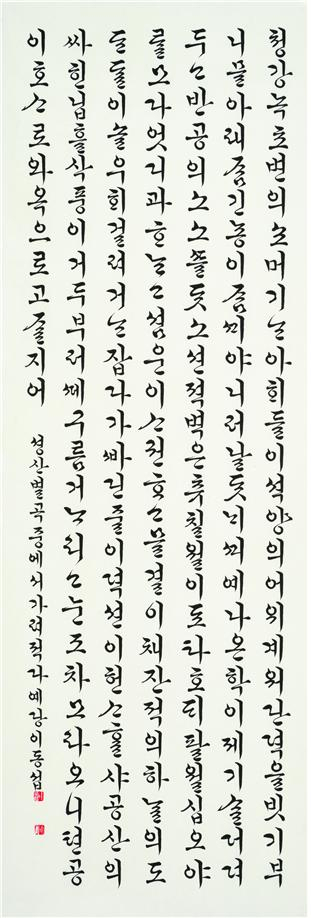 청강녹초변의쇼머기ᄂᆞᆫ아희들이석양의어위계워단뎍을빗기부
니믈아래ᄌᆞᆷ긴뇽이ᄌᆞᆷᄭᆡ야니러날ᄃᆞᆺᄂᆡᄭᅴ예나온학이제기슬더뎌
두고반공의소소ᄯᅳᆯᄃᆞᆺ소선적벽은추칠월이됴타호ᄃᆡ팔월십오야
ᄅᆞᆯ모다엇디과ᄒᆞᄂᆞᆫ고셤운이ᄉᆞ권ᄒᆞ고믈결이채잔적의하ᄂᆞᆯ의도
ᄃᆞᆫᄃᆞᆯ이솔우희걸려거ᄂᆞᆯ잡다가ᄲᅡ딘줄이뎍션이헌ᄉᆞᄒᆞᆯ샤공산의
싸힌닙흘삭풍이거두부러ᄯᅦ구름거ᄂᆞ리고눈조차모라오니텬공
이호ᄉᆞ로와옥으로고ᄌᆞᆯ지어
성산별곡중에서가려적다 예랑이동섭